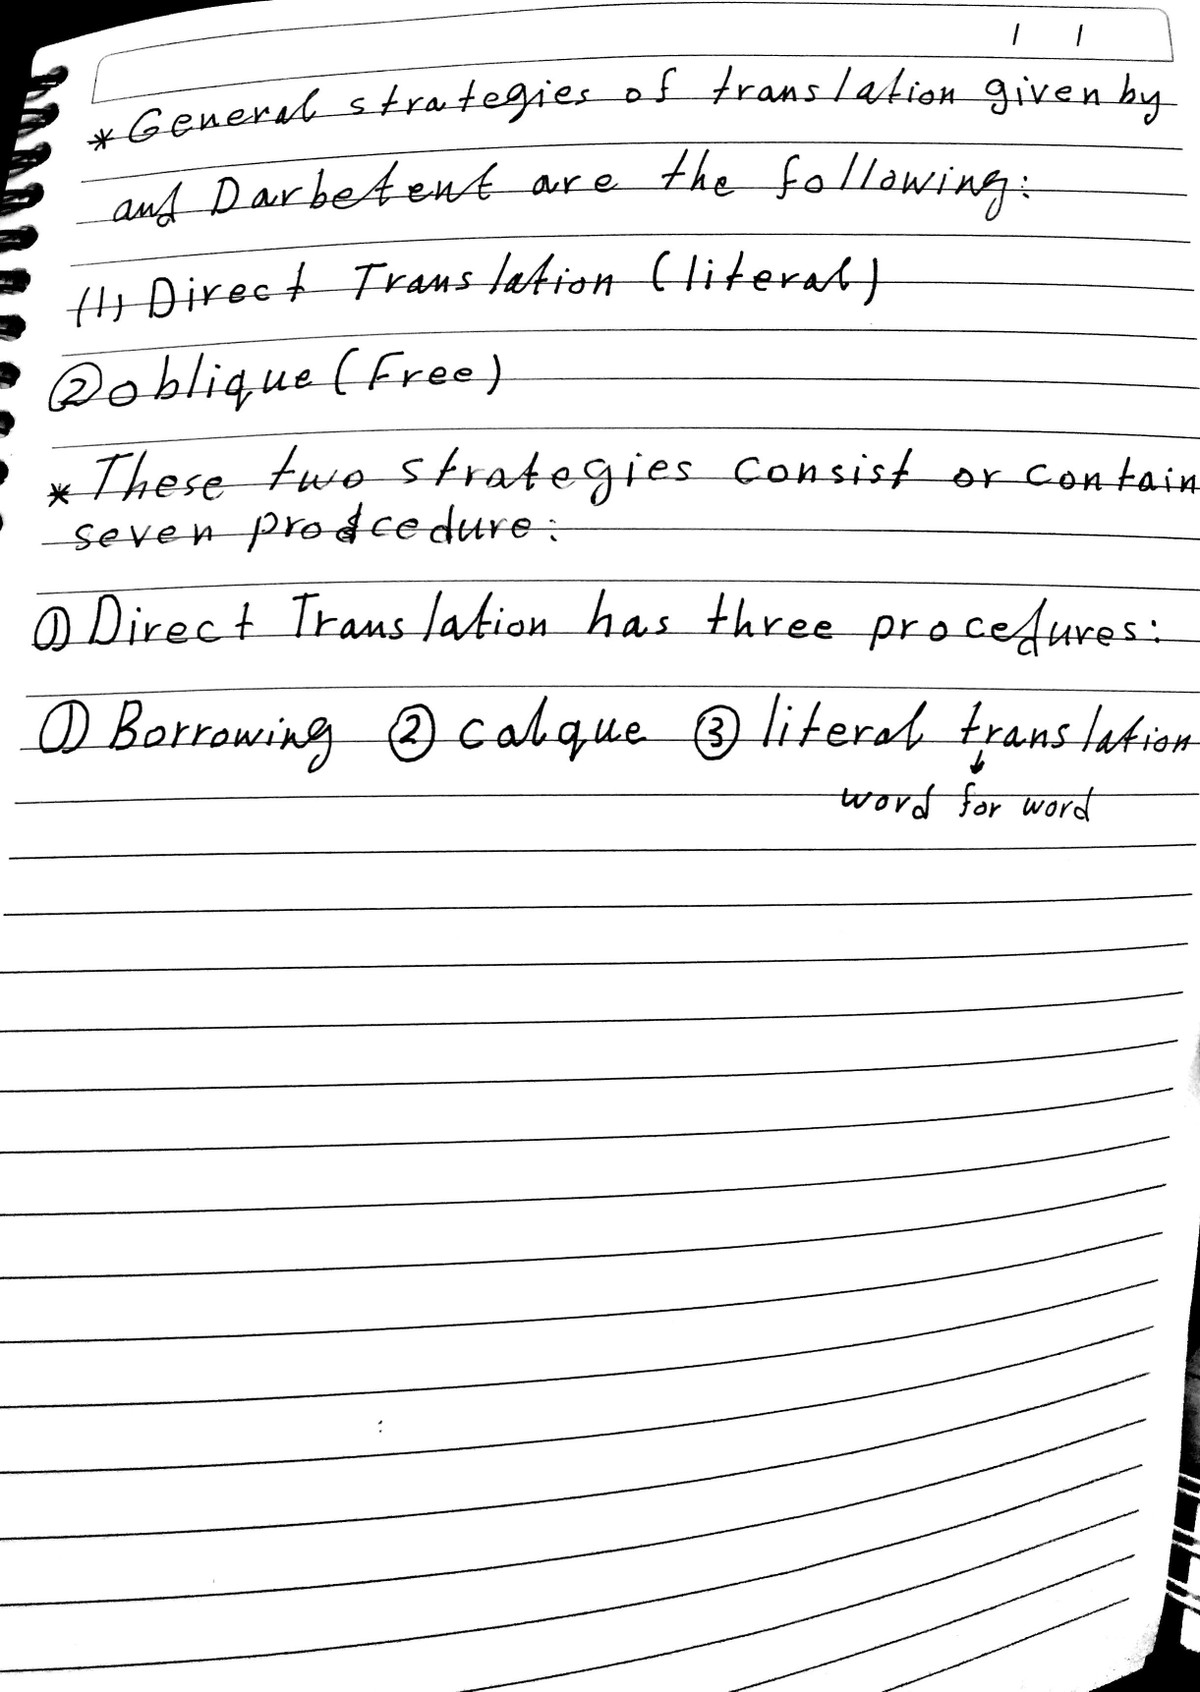 / /
* General strategies of translation given by
and Darbetent are the following:
(1) Direct Translation (literal)
② oblique (Free)
* These two strategies consist or contain
seven prodcedure:
① Direct Translation has three procedures:
① Borrowing ② calque ③ literal translation
↓
word for word